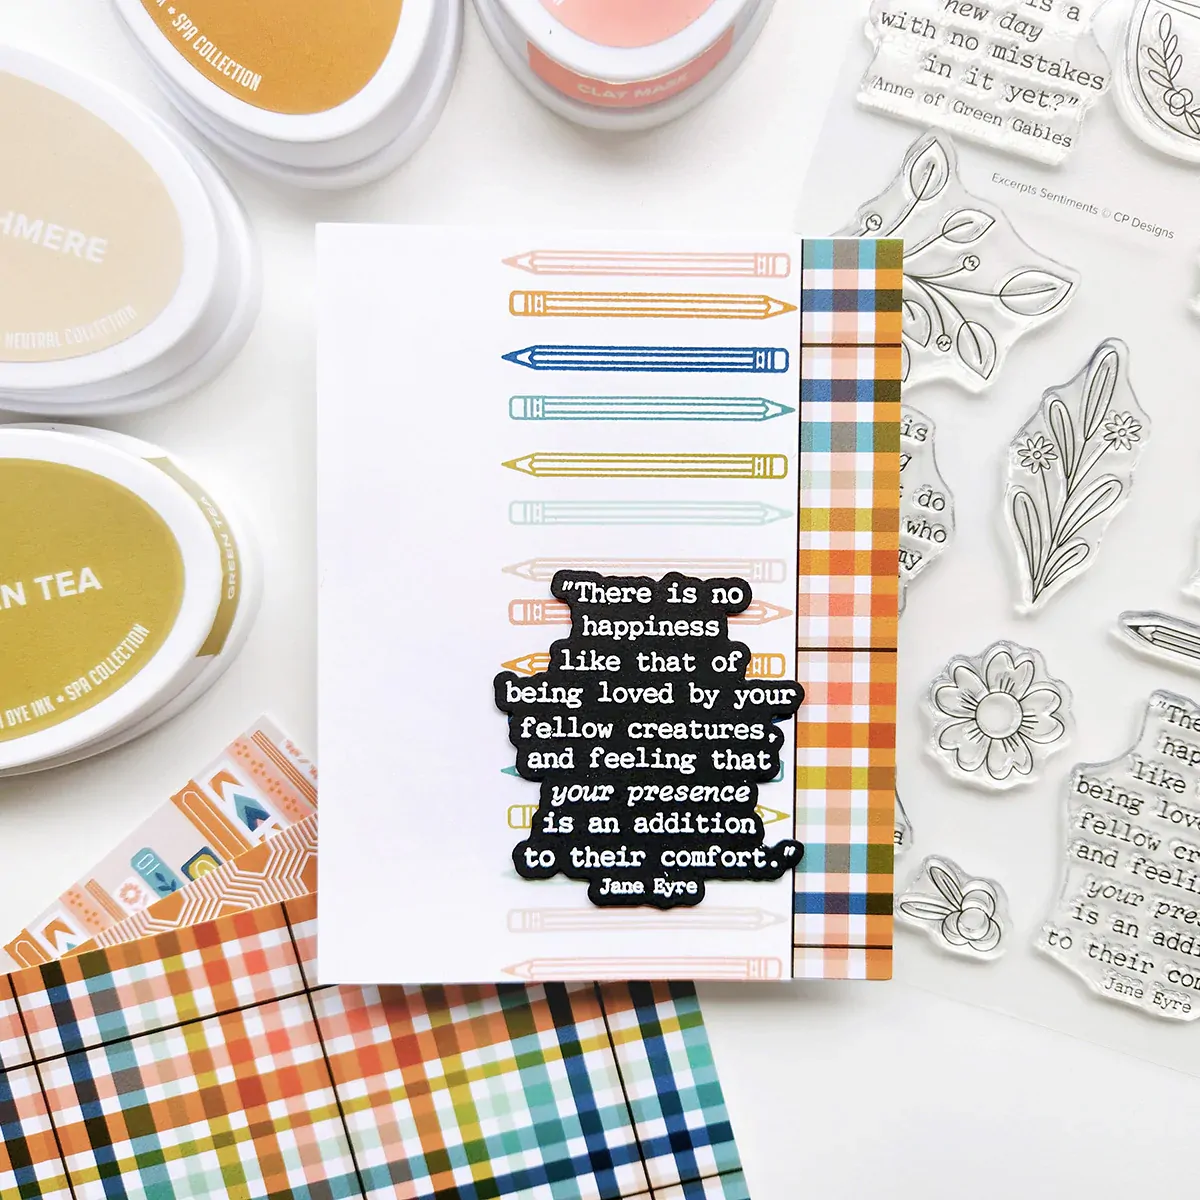 ★ SPA COLLECTION
CLAY MASK
HMERE
NEUTRAL COLLECTION
GREEN TEA
N TEA
DYE INK ★ SPA COLLECTION
is a
new day
with no mistakes
in it yet?"
Anne of Green Gables
Excerpts Sentiments © CP Designs
is
do
who
my
"There is no
happiness
like that of
being loved by your
fellow creatures,
and feeling that
your presence
is an addition
to their comfort."
Jane Eyre
01
"The
hap
like
being lov
fellow cr
and feeli
your pres
is an addi
to their com
Jane Eyre